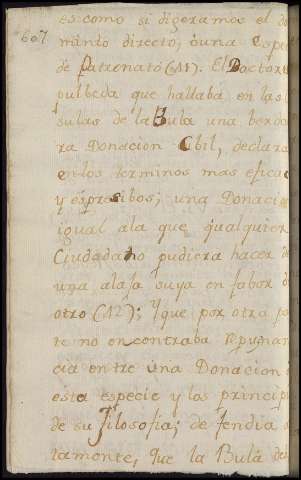 607
es como si digeramos el do
minio directo; ó una espe
de Patronató (11). El Doctor
que hallaba en las
sulas de la Bula una berda
ra Donacion Cibil, declara
en los terminos mas eficac
y espresibos; una Donacio
igual ala que qualquier
Ciudadano pudiera hacer d
una alaja suya en fabor d
otro (12); Y que por otra pa
te no encontraba repugnan
cia entre una Donacion
esta especie y las princip
de su Filosofia; defendia a
tamente, que la Bula